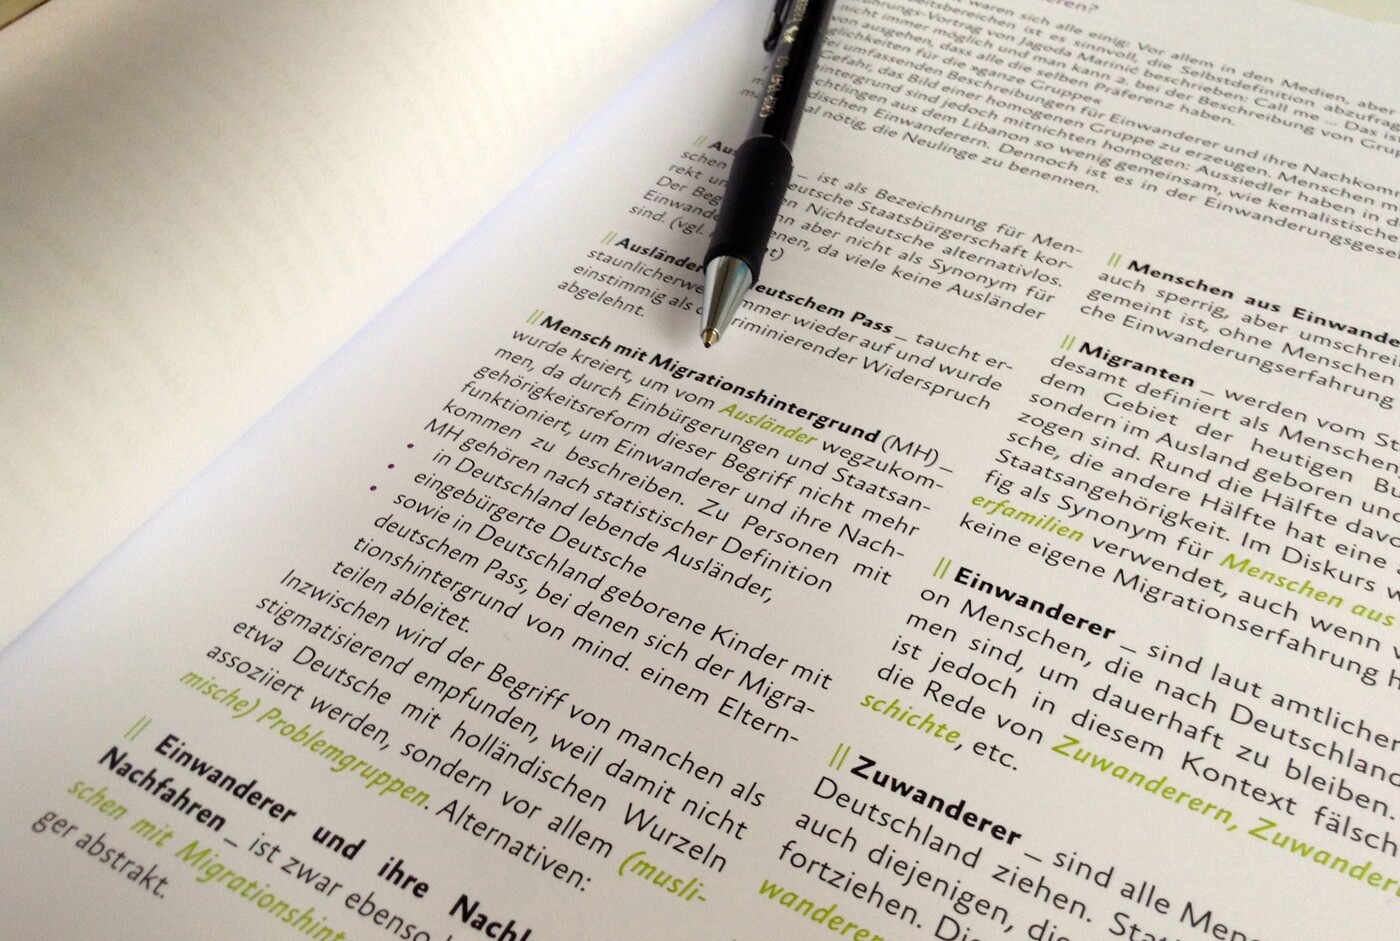 eren?
waren sich alle einig: Vor allem in den Medien, aber
beitsbereichen ist es sinnvoll, die Selbstdefinition abzufrag
ührungs-Vortrag von Jagoda Marinić beschrieben: Call me ... Das is
nicht immer möglich und man kann 2. bei der Beschreibung von Gru
von ausgehen, dass alle die selben Präferenz haben.
glichkeiten für die »ganze Gruppe«
ei umfassenden Beschreibungen für Einwanderer und ihre Nachkom
Gefahr, das Bild einer homogenen Gruppe zu erzeugen. Menschen m
hintergrund sind jedoch mitnichten homogen: Aussiedler haben in d
chtlingen aus dem Libanon so wenig gemeinsam, wie kemalistische
dischen Einwanderern. Dennoch ist es in der Einwanderungsgesel
al nötig, die Neulinge zu benennen.
|| Aus – ist als Bezeichnung für Men-
schen eutsche Staatsbürgerschaft kor-
rekt un en Nichtdeutsche alternativlos.
Der Beg nn aber nicht als Synonym für
Einwande enen, da viele keine Ausländer
sind. (vgl. t)
|| Ausländer eutschem Pass – taucht er-
staunlicherwe mmer wieder auf und wurde
einstimmig als d riminierender Widerspruch
abgelehnt.
|| Mensch mit Migrationshintergrund (MH) –
wurde kreiert, um vom Ausländer wegzukom-
men, da durch Einbürgerungen und Staatsan-
gehörigkeitsreform dieser Begriff nicht mehr
funktioniert, um Einwanderer und ihre Nach-
kommen zu beschreiben. Zu Personen mit
MH gehören nach statistischer Definition
• in Deutschland lebende Ausländer,
• eingebürgerte Deutsche
• sowie in Deutschland geborene Kinder mit
deutschem Pass, bei denen sich der Migra-
tionshintergrund von mind. einem Eltern-
teilen ableitet.
Inzwischen wird der Begriff von manchen als
stigmatisierend empfunden, weil damit nicht
etwa Deutsche mit holländischen Wurzeln
assoziiert werden, sondern vor allem (musli-
mische) Problemgruppen. Alternativen:
|| Einwanderer und ihre Nachk
Nachfahren – ist zwar ebenso
schen mit Migrationshint
ger abstrakt.
|| Menschen aus Einwande
auch sperrig, aber umschrei
gemeint ist, ohne Menschen
che Einwanderungserfahrung
|| Migranten – werden vom St
desamt definiert als Menschen,
dem Gebiet der heutigen Bu
sondern im Ausland geboren und
zogen sind. Rund die Hälfte davo
sche, die andere Hälfte hat eine
Staatsangehörigkeit. Im Diskurs w
fig als Synonym für Menschen aus
erfamilien verwendet, auch wenn
keine eigene Migrationserfahrung h
|| Einwanderer – sind laut amtlicher
on Menschen, die nach Deutschland
men sind, um dauerhaft zu bleiben.
ist jedoch in diesem Kontext fälsch
die Rede von Zuwanderern, Zuwander
schichte, etc.
|| Zuwanderer – sind alle Mens
Deutschland ziehen. Stat
auch diejenigen, die
fortziehen. Die
wanderer